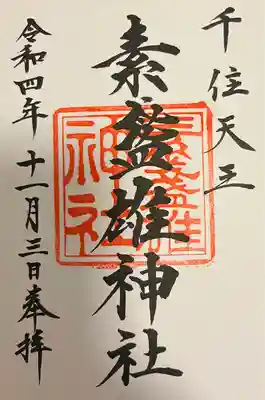 千住天王
素盞雄神社
令和四年十一月三日奉拝
素盞雄神社